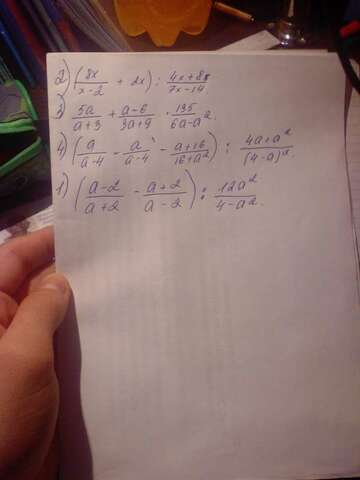 2) (8x/x-2 + 2x) : 4x+8x/7x-14
3) 5a/a+3 + a-6/3a+9 · 135/6a-a²
4) (a/a-4 - a/a-4 - a+16/16+a²) : 4a+a²/(4-a)²
1) (a-2/a+2 - a+2/a-2) : 12a²/4-a²